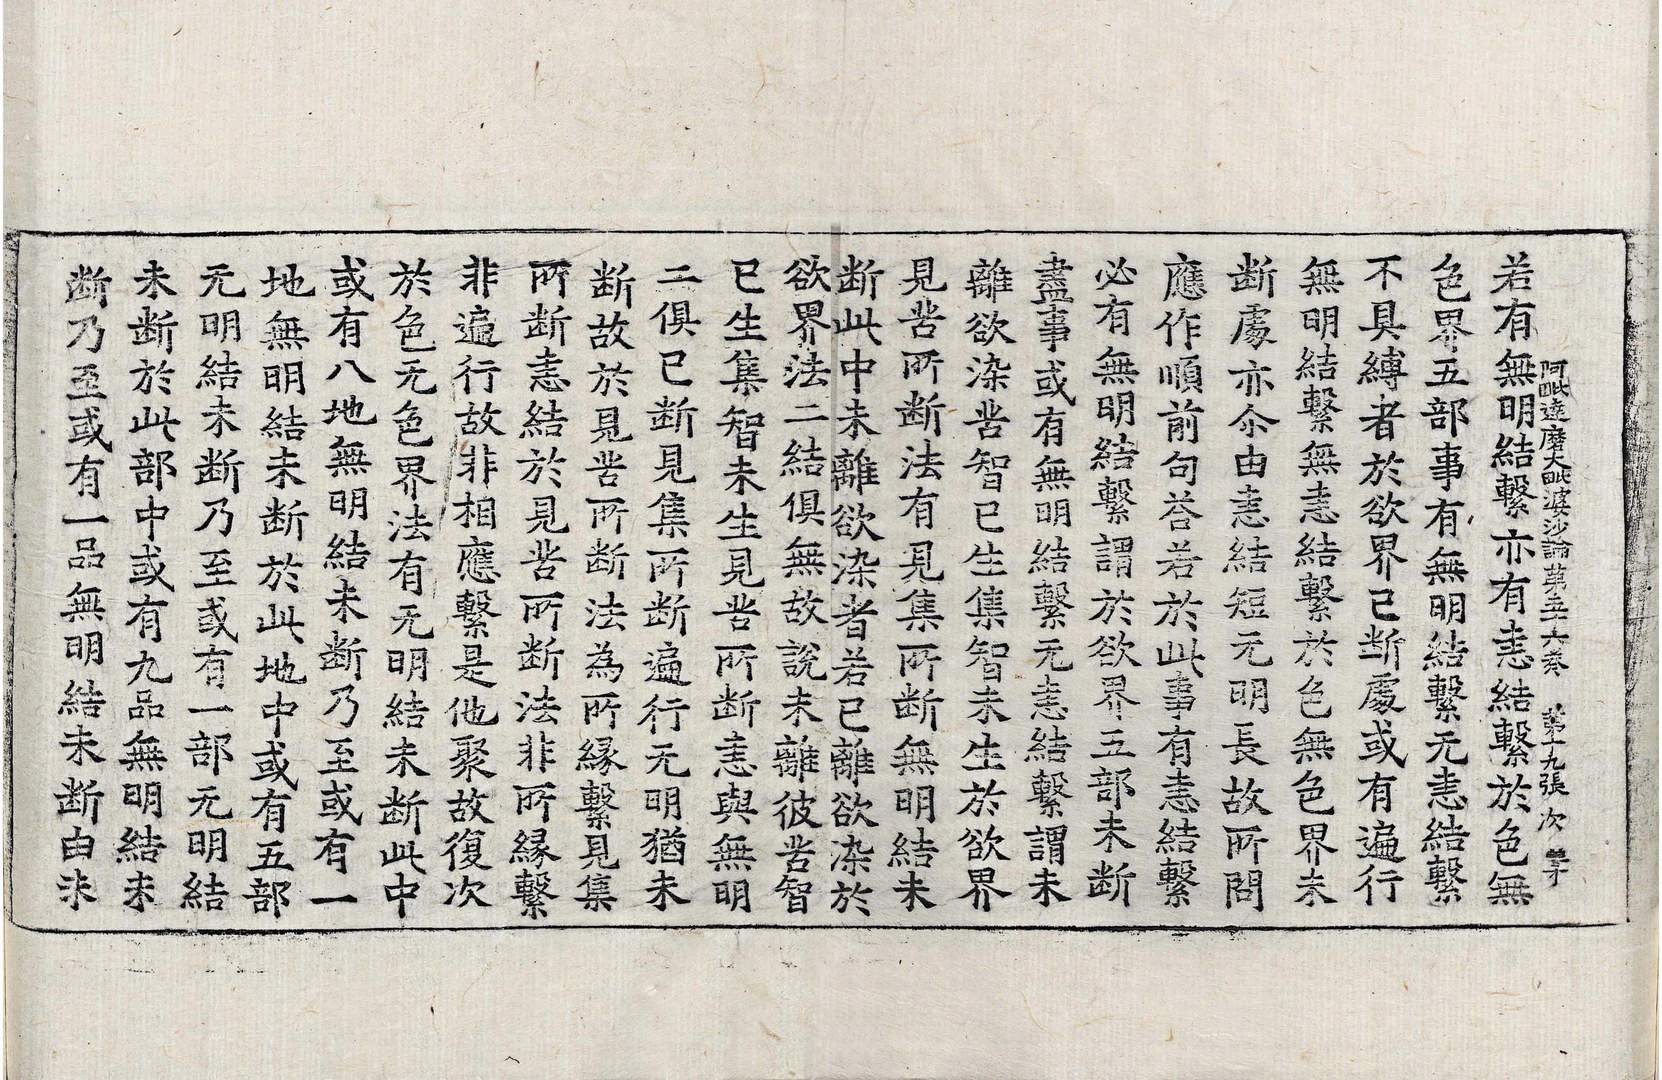 阿毗達磨大毗婆沙論第五十六卷　第十九張　次字
若有無明結繫亦有恚結繫於色無
色界五部事有無明結繫无恚結繫
不具縛者於欲界已断處或有遍行
無明結繫無恚結繫於色無色界未
断處亦尒由恚結短无明長故所問
應作順前句荅若於此事有恚結繫
必有無明結繫謂於欲界五部未断
盡事或有無明結繫无恚結繫謂未
離欲染苦智已生集智未生於欲界
見苦所断法有見集所断無明結未
断此中未離欲染者若已離欲染於
欲界法二結俱無故說未離彼苦智
已生集智未生見苦所断恚與無明
二俱已断見集所断遍行无明猶未
断故於見苦所断法為所緣繫見集
所断恚結於見苦所断法非所緣繫
非遍行故非相應繫是他聚故復次
於色无色界法有无明結未断此中
或有八地無明結未断乃至或有一
地無明結未断於此地中或有五部
无明結未断乃至或有一部无明結
未断於此部中或有九品無明結未
断乃至或有一品無明結未断由未